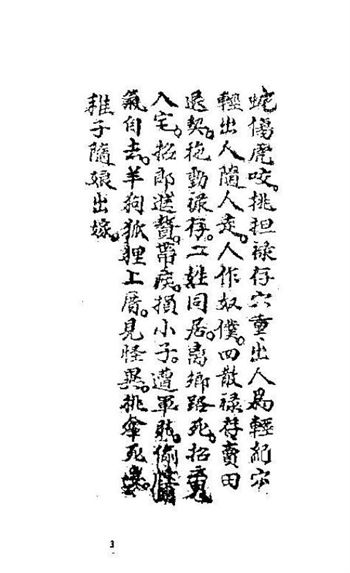 蛇傷虎咬。挑担禄存穴重。出人為輕紀穴
輕出人隨人走。人作奴僕。四散禄存賣田
退契。拖動禄存。二姓同居。离鄉路死。招
入宅。招郎送贅。帶疾。損小子。遭軍賊。偷
氣自去。羊狗狐狸上。見怪異。挑傘死
稚子隨娘出嫁。
3